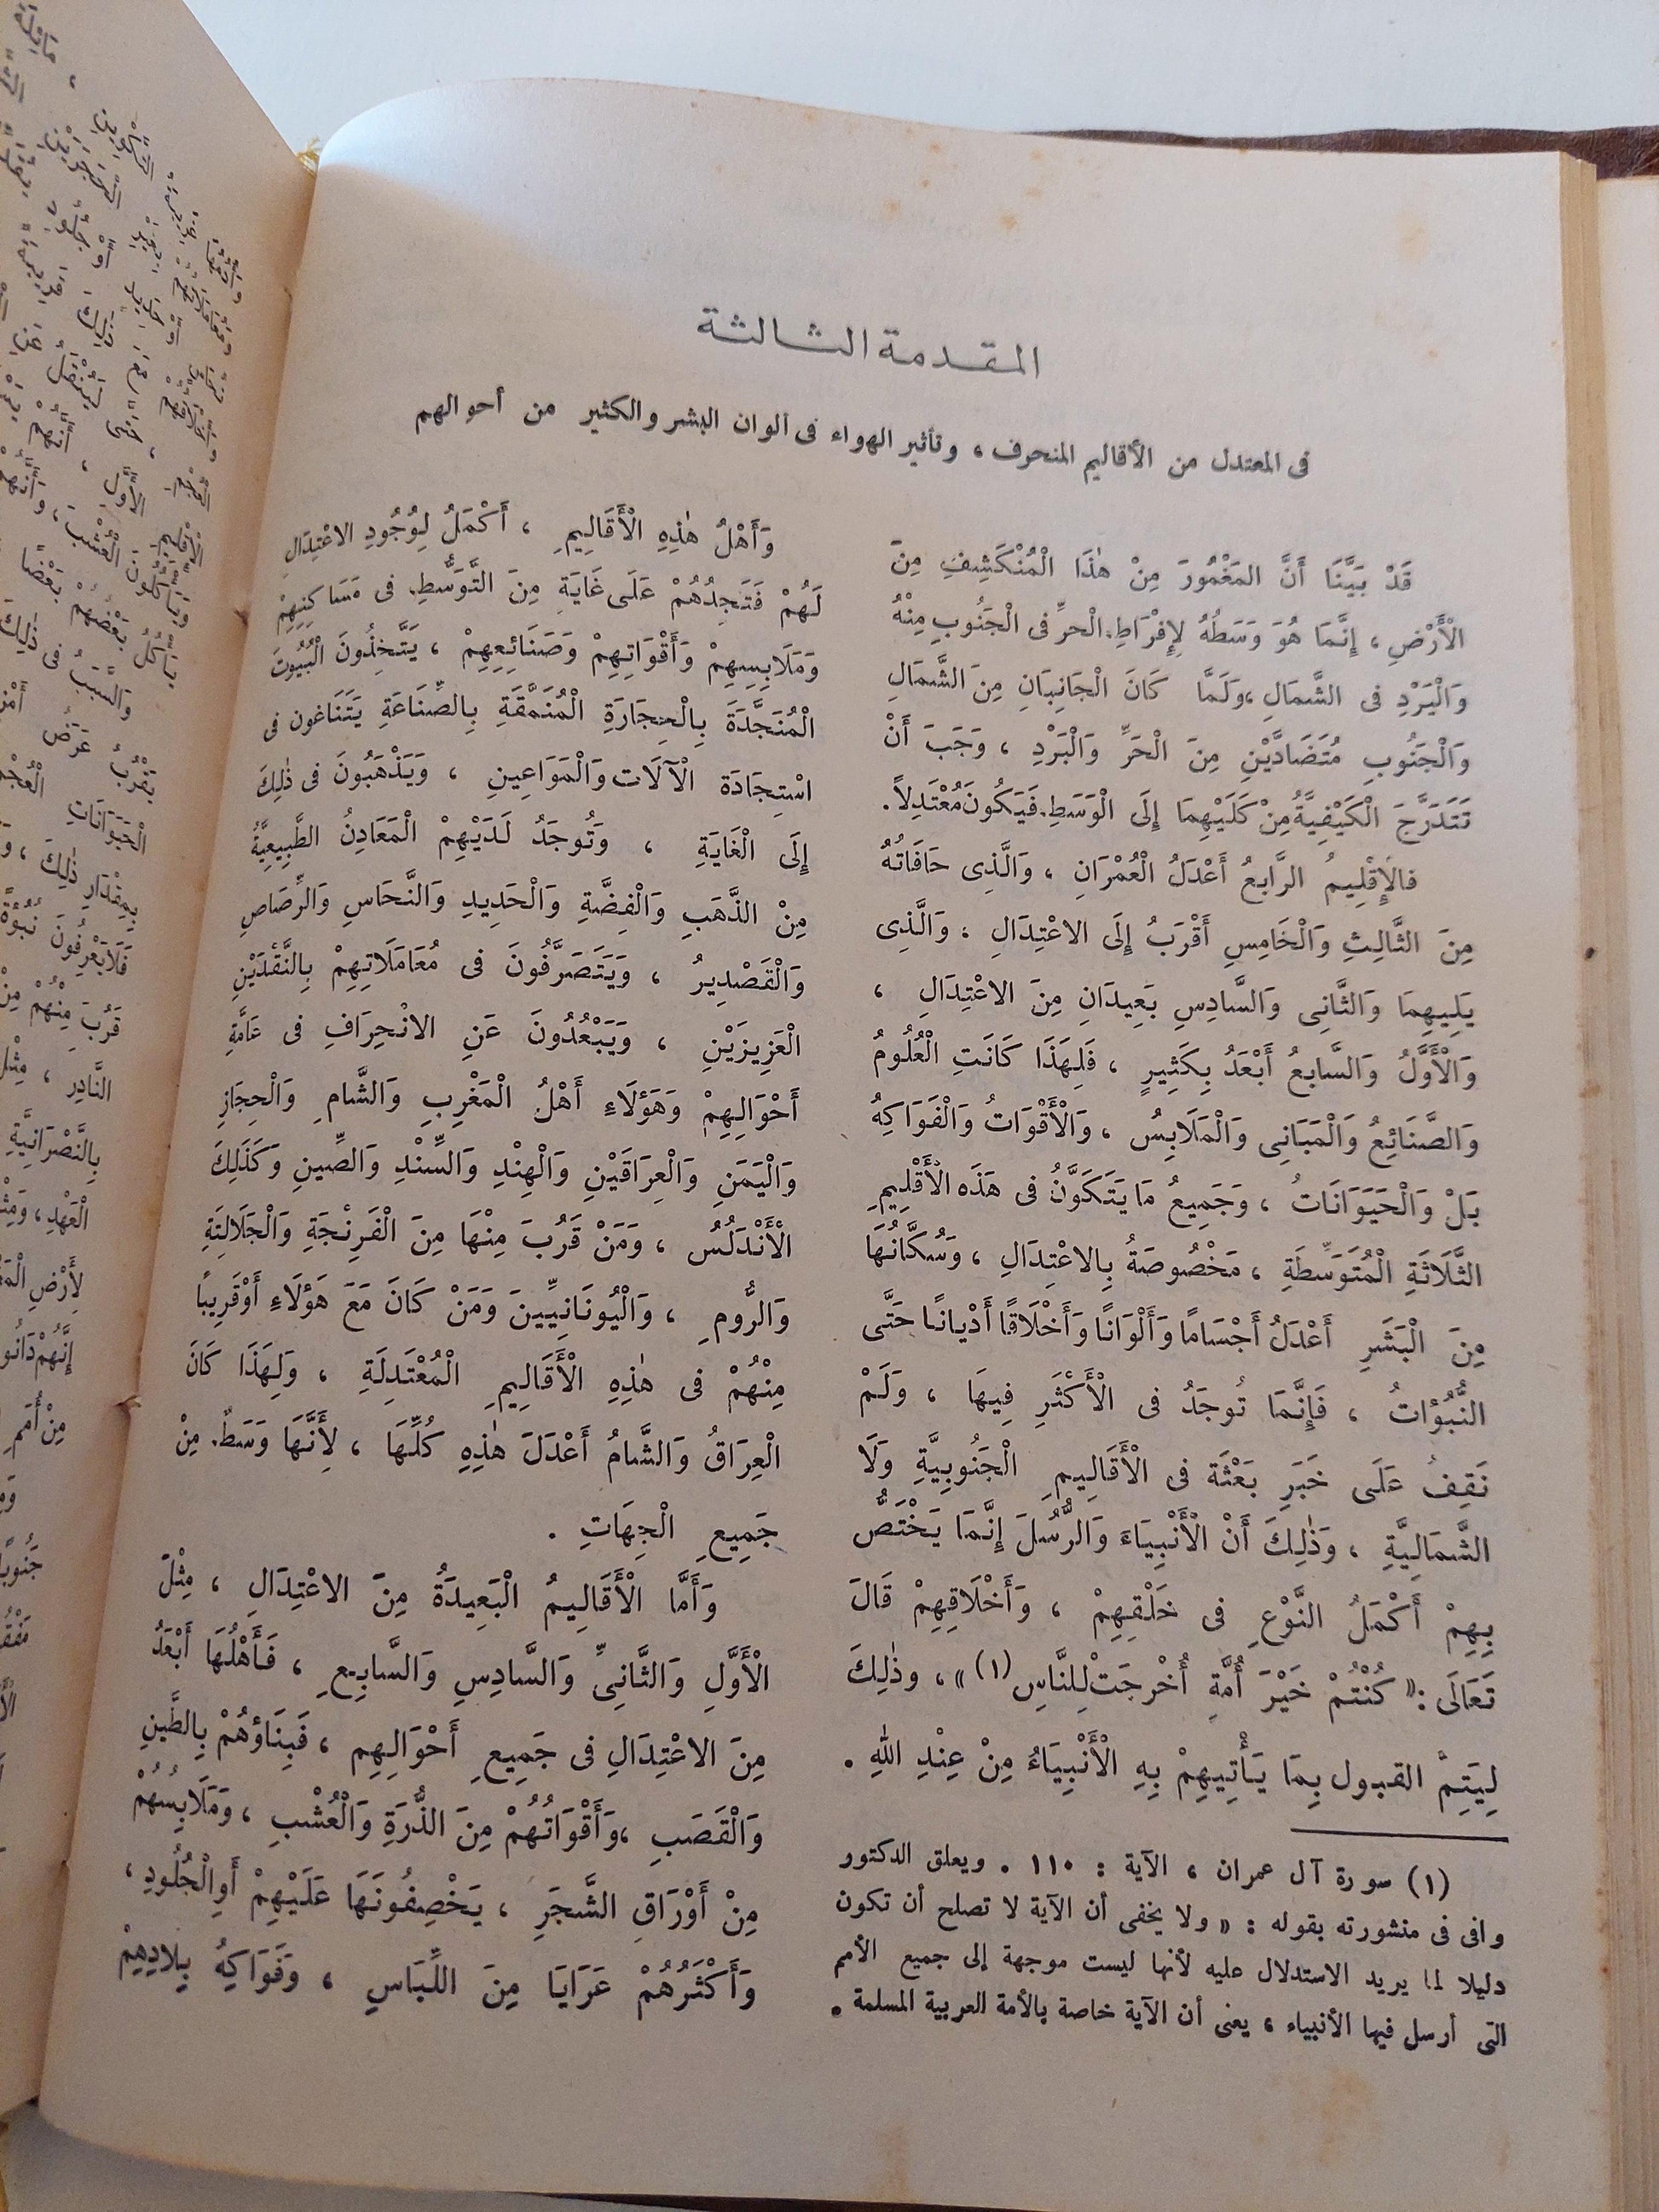 المقدمة الثالثة
فى المعتدل من الأقاليم المنحرف ، وتأثير الهواء فى ألوان البشر والكثير من أحوالهم
قَدْ بَيَّنَّا أَنَّ المَغْمُورَ مِنْ هٰذَا الْمُنْكَشِفِ مِنَ
الْأَرْضِ ، إِنَّمَا هُوَ وَسَطُهُ لِإِفْرَاطِ الْحرِّ فى الْجَنُوبِ مِنْهُ
وَالْبَرْدِ فى الشَّمَالِ ، وَلَمَّا كَانَ الْجَانِبَانِ مِنَ الشَّمَالِ
وَالْجَنُوبِ مُتَضَادَّيْنِ مِنَ الْحَرِّ وَالْبَرْدِ ، وَجَبَ أَنْ
تَتَدَرَّجَ الْكَيْفِيَّةُ مِنْ كَلَيْهِمَا إِلَى الْوَسَطِ فَيَكُونَ مُعْتَدِلاً .
فالْإِقْلِيمُ الرَّابِعُ أَعْدَلُ الْعُمْرَانِ ، وَالَّذِى حَافَاتُهُ
مِنَ الثَّالِثِ وَالْخَامِسِ أَقْرَبُ إِلَى الاعْتِدَالِ ؛ وَالَّذِى
يَلِيهِمَا وَالثَّانِى وَالسَّادِسِ بَعِيدَانِ مِنَ الاعْتِدَالِ ،
وَالْأَوَّلُ وَالسَّابِعُ أَبْعَدُ بِكَثِيرٍ ، فَلِهَذَا كَانَتِ الْعُلُومُ
وَالصَّنَائِعُ وَالْمَبَانِى وَالْمَلَابِسُ ، وَالْأَقْوَاتُ وَالْفَوَاكِهُ
بَلْ وَالْحَيَوَانَاتُ ، وَجَمِيعُ مَا يَتَكَوَّنُ فى هَذَه الْأَقْلِيمِ
الثَّلَاثَةِ الْمُتَوَسِّطَةِ ، مَخْصُوصَةُ بِالاعْتِدَالِ ، وَسُكَّانُهَا
مِنَ الْبَشَرِ أَعْدَلُ أَجْسَامًا وَأَلْوَانًا وَأَخْلَاقًا أَدْيانًا حَتَّى
النُّبُوَّاتُ ، فَإِنَّمَا تُوجَدُ فى الْأَكْثَرِ فِيهَا ، وَلَمْ
نَقِفْ عَلَى خَبَرِ بَعْثَة فى الْأَقَالِيمِ الْجَنُوبِيَّةِ وَلَا
الشَّمَالِيَّةِ ، وَذٰلِكَ أَنْ الْأَنْبِيَاءَ وَالرُّسُلَ إِنَّمَا يَخْتَصُّ
بِهِمْ أَكْمَلُ النَّوْعِ فى خَلْقِهِمْ ، وَأَخْلَاقِهِمْ قَالَ
تَعَالَى : « كُنْتُمْ خَيْرَ أُمَّةٍ أُخْرجَتْ لِلنَّاسِ (١) » ، وذٰلِكَ
لِيَتِمْ القبول بِمَا يَأْتِيهِمْ بِهِ الْأَنْبِيَاءُ مِنْ عِنْدِ اللهِ .
(١) سورة آل عمران ، الآية : ١١٠ . ويعلق الدكتور
وافى فى منشورته بقوله : « ولا يخفى أن الآية لا تصلح أن تكون
دليلا لما يريد الاستدلال عليه لأنها ليست موجهة إلى جميع الأمم
التى أرسل فيها الأنبياء ، يعنى أن الآية خاصة بالأمة العربية المسلمة .
وَأَهْلُ هٰذِهِ الْأَقَالِيمِ ، أَكْمَلُ لِوُجُودِ الاعْتِدَالِ
لَهُمْ فَتَجِدُهُمْ عَلَى غَايَةِ مِنَ التَّوَسُّطِ فى مَسَاكِنِهِمْ
وَمَلَابِسِهِمْ وَأَقْوَاتِهِمْ وَصَنَائِعِهِمْ ، يَتَّخِذُونَ الْبُيُوتَ
الْمُنَجَّدَةَ بِالْحِجَارَةِ الْمُنَمَّقَةِ بِالصِّنَاعَةِ يَتَنَاغون فى
اسْتِجَادَة الْآلَات وَالْمَوَاعِينِ ، وَيَذْهَبُونَ فى ذٰلِكَ
إِلَى الْغَايَةِ ، وَتُوجَدُ لَدَيْهِمْ الْمَعَادِنُ الطَّبِيعِيَّةُ
مِنْ الذَّهَبِ وَالْفِضَّةِ وَالْحَدِيدِ وَالنَّحَاسِ وَالرِّصَاصِ
وَالْقَصْدِيرُ ، وَيَتَصَرَّفُونَ فى مُعَامَلَاتِهِمْ بِالنَّقْدَيْنِ
الْعَزِيزَيْنِ ، وَيَبْعُدُونَ عَنِ الانْحِرَافِ فى عَامَّةِ
أَحْوَالِهِمْ وَهَؤلَاءِ أَهْلُ الْمَغْرِبِ وَالشَّامِ وَالْحِجَازِ
وَالْيَمَنِ وَالْعِرَاقَيْنِ وَالْهِنْدِ وَالسِّنْدِ وَالصِّينِ وَكَذَلِكَ
الْأَنْدَلُسُ ، وَمَنْ قَرُبَ مِنْهَا مِنَ الْفَرِنْجَةِ وَالْجَلَالِتَةِ
وَالرُّومِ ، وَالْيُونَانِيِّينَ وَمَنْ كَانَ مَعَ هَؤلَاءِ أَوْقَرِيبًا
مِنْهُمْ فى هٰذِهِ الْأَقَالِيمِ الْمُعْتَدِلَةِ ، وَلِهَذَا كَانَ
الْعِرَاقُ وَالشَّامُ أَعْدَلَ هٰذِهِ كُلِّهَا ، لأَنَّهَا وَسَطٌ مِنْ
جَمِيعِ الْجِهَاتِ .
وَأَمَّا الْأَقَالِيمُ الْبَعِيدَةُ مِنَ الاعْتِدَالِ ، مِثْلَ
الْأَوَّلِ وَالثَّانِىِّ وَالسَّادِسِ وَالسَّابِعِ ، فَأَهْلُهَا أَبْعَدُ
مِنَ الاعْتِدَالِ فى جَمِيعِ أَحْوَالِهِم ، فَبِنَاؤهُمْ بِالطَّيْنِ
وَالْقَصَبِ ، وَأَقْوَاتُهُمْ مِنَ الذُّرَةِ وَالْعُشْبِ ، وَمَلَابِسُهُمْ
مِنْ أَوْرَاقِ الشَّجَرِ ، يَخْصِفُونَهَا عَلَيْهِمْ أَوِالْجُلُودِ ،
وَأَكْثَرُهُمْ عَرَايَا مِنَ اللِّبَاسِ ، وَفَوَاكِهُ بِلادِهِمْ